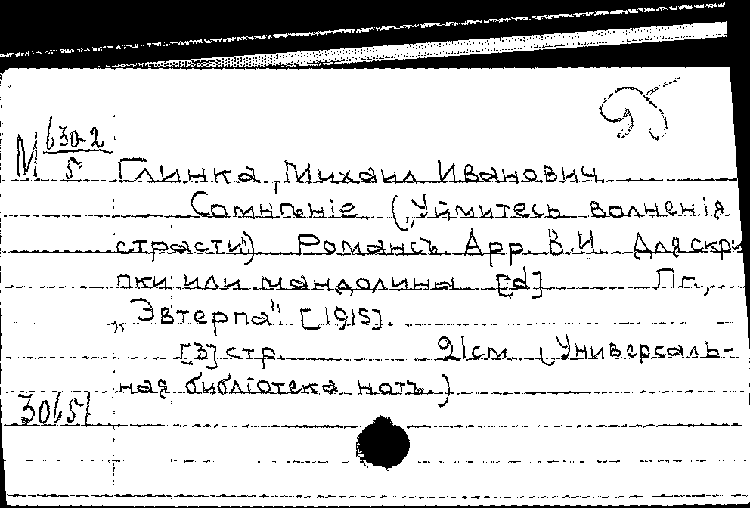 М 630-2
5
Глинка, Михаил Иванович
Сомнѣніе („Уймитесь волненія
страсти“) Романсъ Арр. В.И. Для скри
пки или мандолины [d] Пг.,
„Эвтерпа“ [1915].
[3] стр. 21см (Универсаль-
ная библіотека нотъ.)
30651